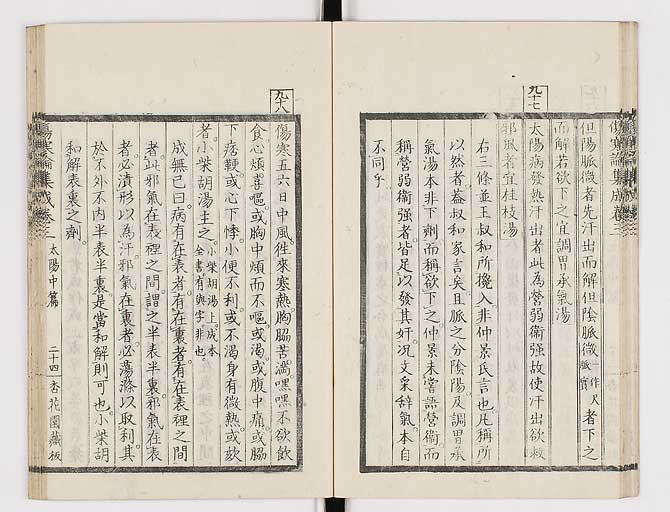 傷寒論集成卷三
但陽脈微者先汗出而解但陰脈微一作尺脈實者下之
而解若欲下之宜調胃承氣湯
九十七
太陽病發熱汗出者此為營弱衞強故使汗出欲救
邪風者宜桂枝湯
右三條並王叔和所攙入非仲景氏言也凡稱所
以然者葢叔和家言矣且脈之分陰陽及調胃承
氣湯本非下劑而稱欲下之仲景未嘗語營衞而
稱營弱衞強者皆足以發其奸况文采辭氣本自
不同乎
九十八
傷寒五六日中風徃來寒熱胸脇苦滿嘿嘿不欲飲
食心煩喜嘔或胸中煩而不嘔或渴或腹中痛或脇
下痞鞕或心下悸小便不利或不渴身有微熱或欬
者小柴胡湯主之小柴胡湯上成本全書有與字非也
成無己曰病有在表者有在裏者有在表裡之間
者此邪氣在表裡之間謂之半表半裏邪氣在表
者必漬形以為汗邪氣在裏者必蕩滌以取利其
於不外不內半表半裏是當和解則可也小柴胡
和解表裏之劑
傷寒論集成卷三 太陽中篇 二十四 杏花園藏板